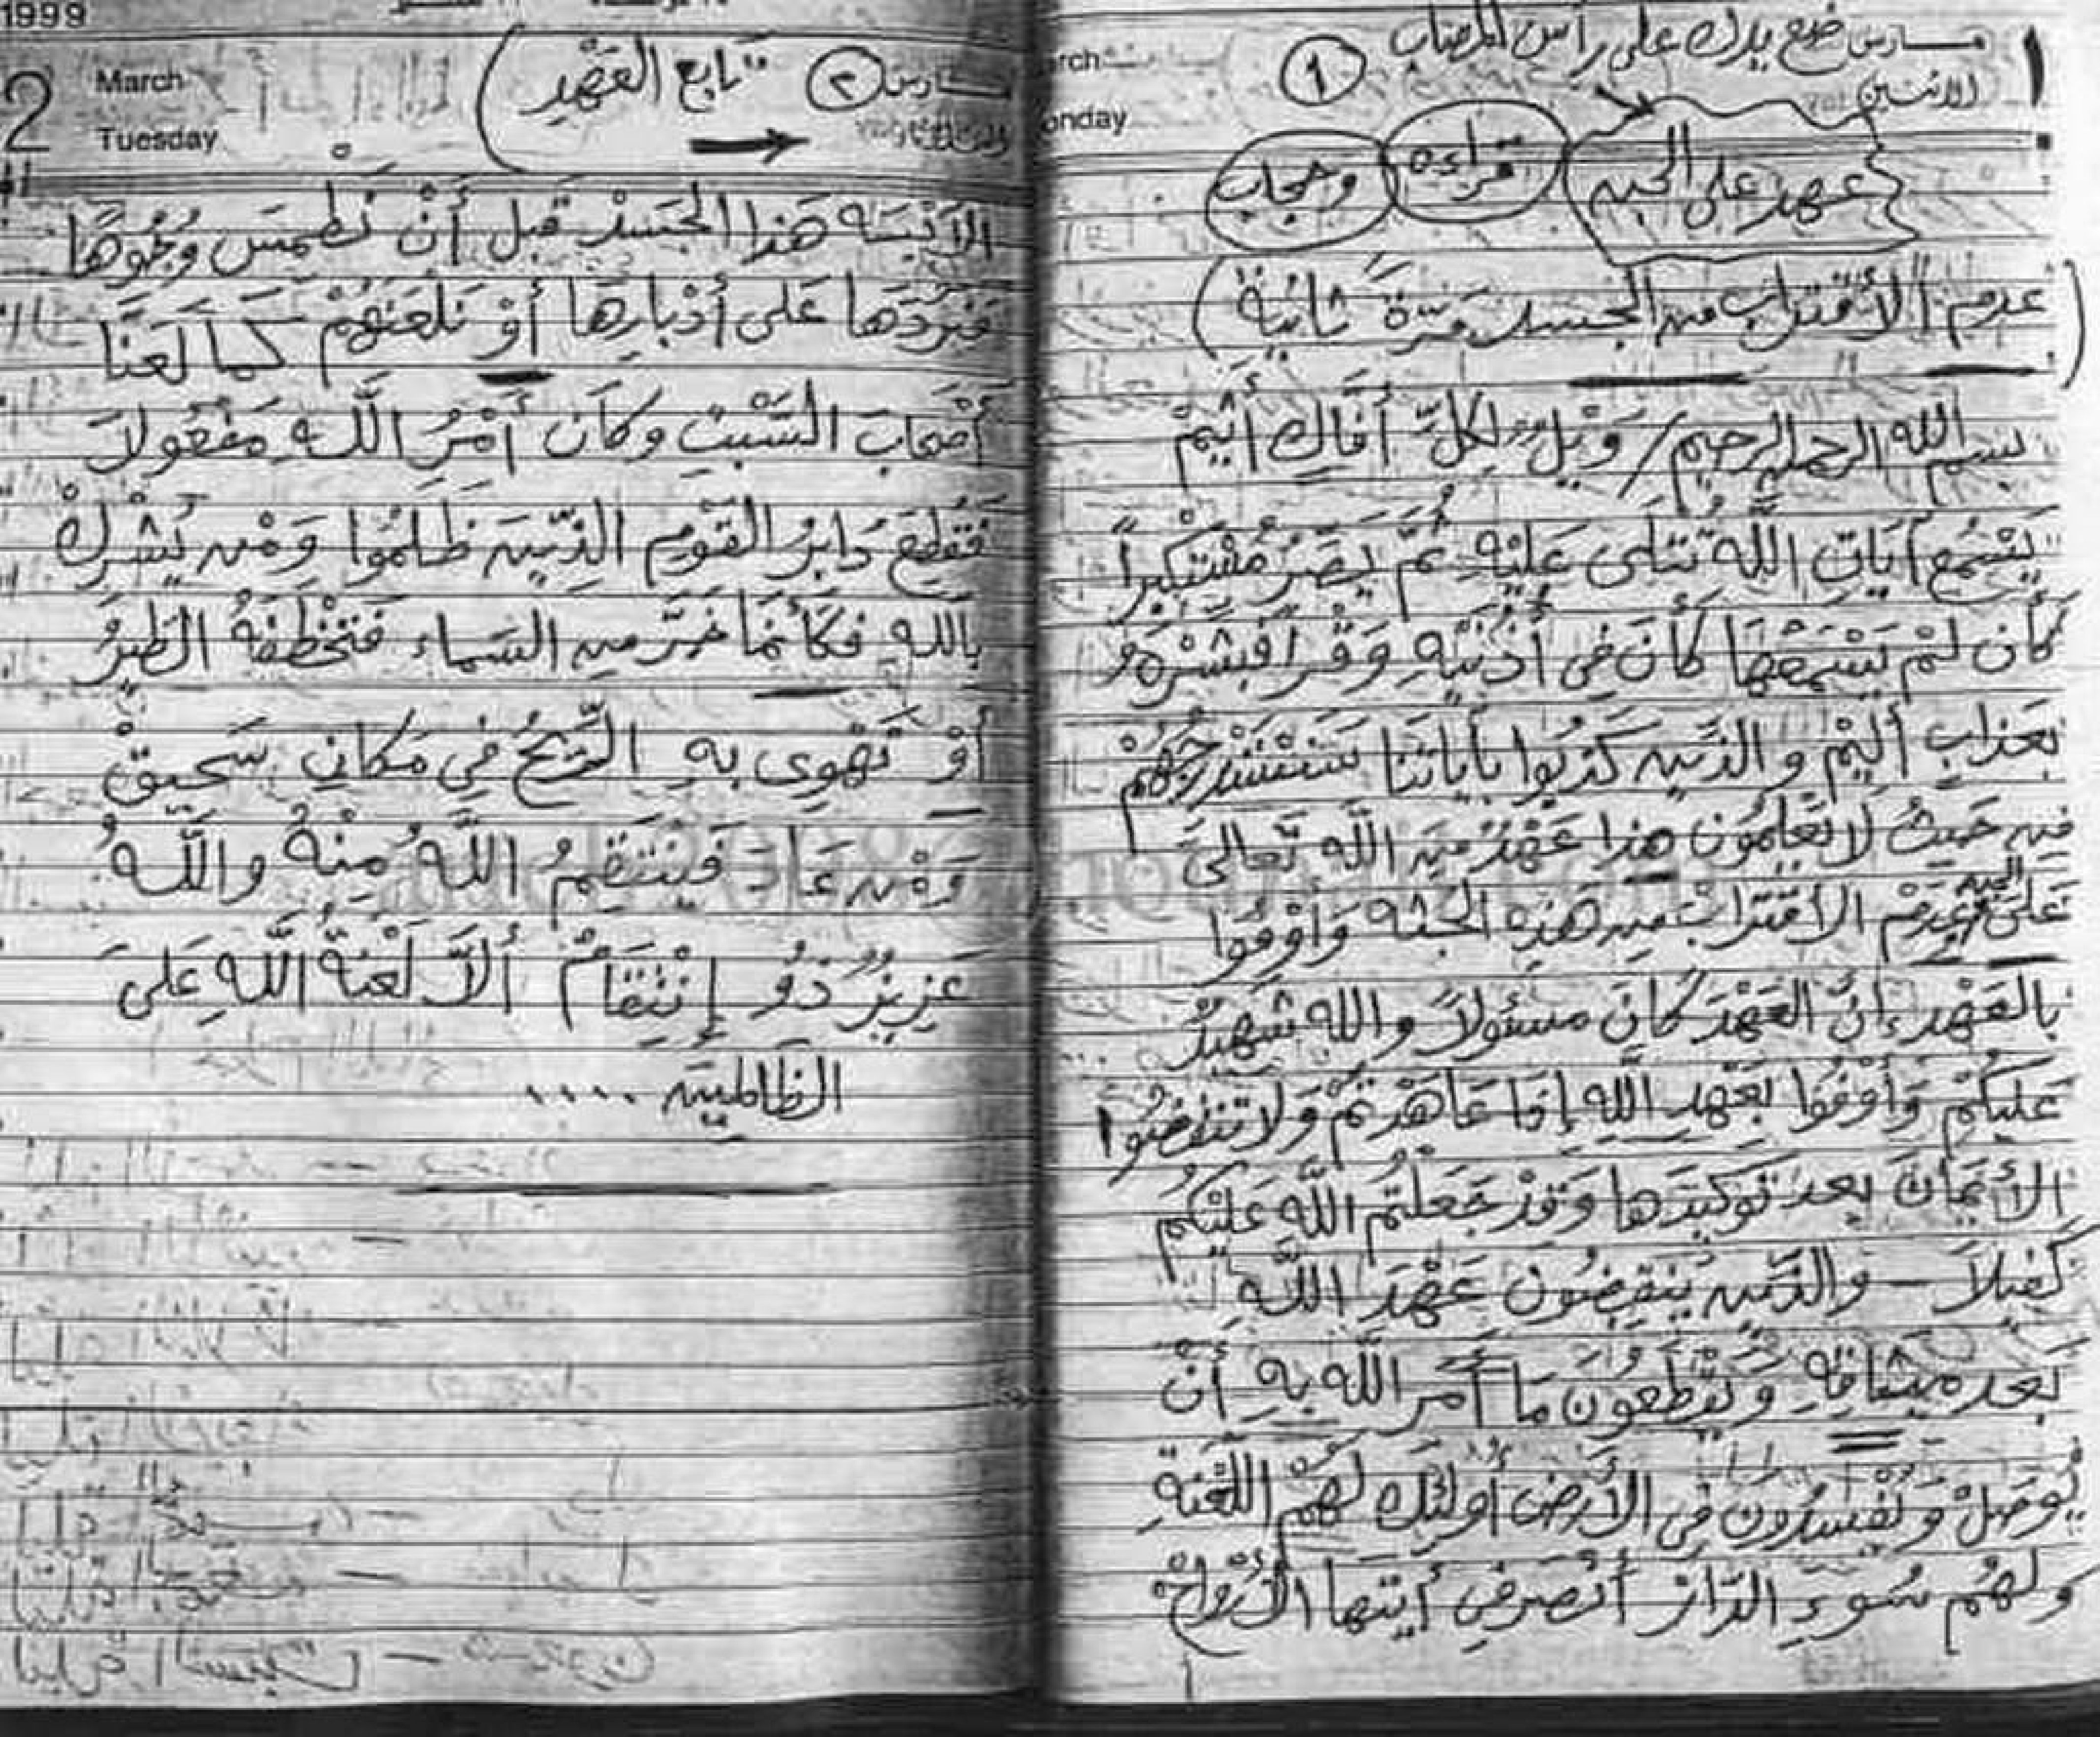 مارس ضع يدك على رأس المصاب
1
الاثنين
March
Monday
١
عهد على الجن
قراءة
وحجاب
(عدم الأقتراب من الجسد مَرّة ثانية)
بسم الله الرحمن الرحيم / وَيْلٌ لِكلِّ أَفَاكٍ أَثِيمْ
يَسْمَع أيَاتِ اللَّه تتلَى عَليْهِ ثُمَّ يَصِرُ مُسْتكبِراً
كَأن لمْ يَسْمَعْهَا كَأَنَ فِى أُذُنَيْهِ وَقْراً فبَشْرْه
بعَذابٍ أَليْمْ والذَينِ كَذبُوا بأياتنَا سَنسْتَدْرِجُهُمْ
مِن حَيثُ لَا يَعْلمُون هذا عَهْدٌ مِنَ اللَّه تَعالىَ
عَلىَ الجن عَدمْ الأقتَرابْ مِن هَذِهِ الجثه وَأوْفُوا
بالعَهْد إنَّ العَهْدَ كَانَ مسئولاً والله شَهِيدٌ
عَليكُمْ وَأَوْفُوا بعَهْدِ اللَّهِ إذَا عَاهَدْتمْ وَلا تنقضُوا
الأَيمَانَ بعد تَوكيدَها وَقدْ جَعَلتُم اللَّهَ عَليْكُم
كَفيلاَ — والذَين يَنقِضُون عَهْدَ اللَّهِ
بَعد مِيثاقِهِ وَيَقْطعُون مَا أَمَر اللَّه بهِ أَنْ
يُوصَلْ وَيُفسدُون فِى الأَرْضِ أُولئِك لهُمْ اللّعْنةِ
ولهُم سُوءِ الدَّارْ أنْصَرفِى أيتهَا الأَرْوَاحْ
1999
2
March
Tuesday
مارس
٢
(تابع العَهْد
الأَتيَه هَذا الجَسَدْ قَبل أَنْ نَطْمِسَ وُجُوهًا
فنردّهَا عَلى أَدْبَارِهَا أوْ نَلعَنهُمْ كَمَا لعَنَّا
أَصْحابَ السَّبْتِ وكَانَ أَمْرُ اللَّهِ مَفْعُولاَ
فقُطِعَ دَابِرُ القَوْمِ الذِينَ ظَلمُوا وَمْن يُشْرِكْ
بِاللهِ فكَأنمَا خَرَّ مِن السَماء فَتخْطَفَهُ الطَيرُ
أوْ تَهْوِى بهِ الرِّيحُ فِي مَكانٍ سَحِيقْ
وَمْن عَادَ فَيَنْتَقِمُ اللَّهُ مِنْهُ واللَّهُ
عَزِيزٌ ذُو إِنْتِقَامٌ أَلاَّ لَعْنَةُ اللَّهِ عَلىَ
الظَالِمِينَ ....